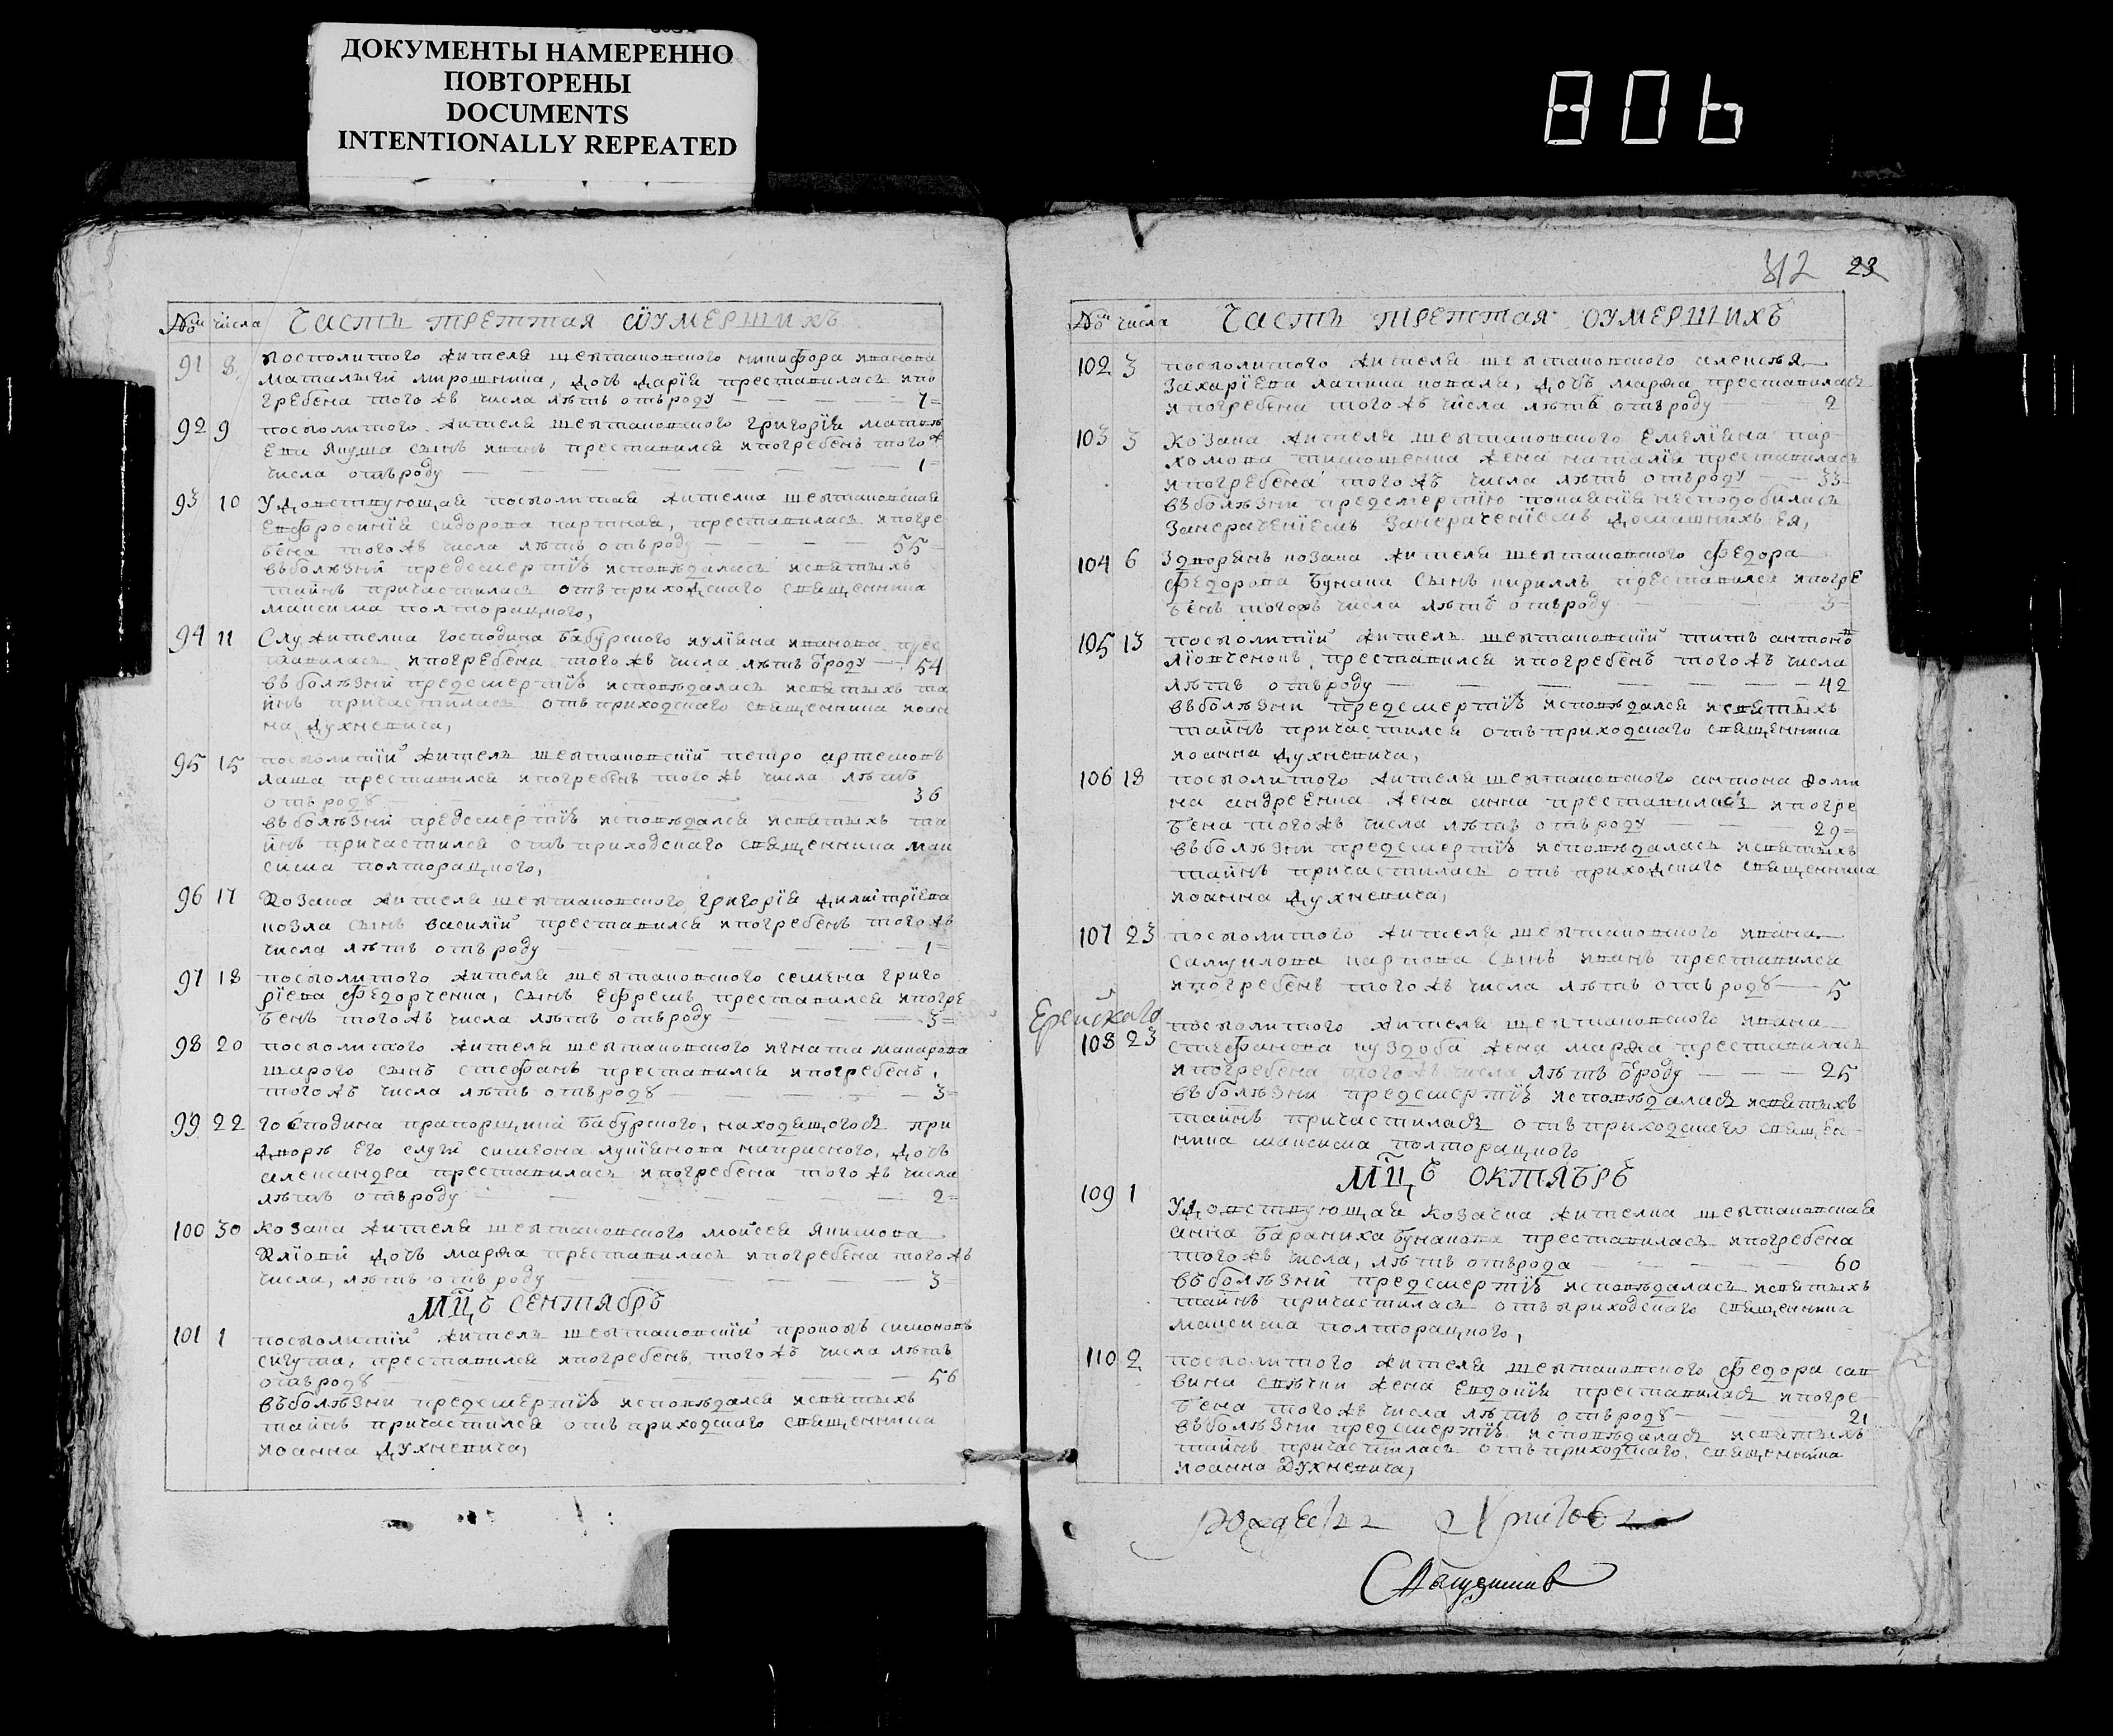 ДОКУМЕНТЫ НАМЕРЕННО
ПОВТОРЕНЫ
DOCUMENTS
INTENTIONALLY REPEATED
806
№ числа Часть треттая ѡумершихъ
91 8 посполитого жителя шептаковского никифора иванова
мирошника, дочь дарїя преставилась ипо
гребена того жъ числа лѣтъ отъроду 7
92 9 посполитого жителя шептаковского григорїя матвѣ
ева януша сынъ иванъ преставился ипогребенъ того ж
числа отъроду 1
93 10 Удовствующая посполитая жителка шептаковская
Евфросинїя сидорова, преставилась ипогре
бена того жъ числа лѣтъ отъроду 55
въболѣзни предсмертїѣ исповѣдалась исвятыхъ
тайнъ причастилась отъприходского священника
максима полторацкого,
94 11 Служителка господина бабурского иулїяна иванова прес
тавилась ипогребена того жъ числа лѣтъ ороду 54
въболѣзни предсмертїѣ исповѣдалась исвятыхъ та
инъ причастилась отъприходского священника иоан
на духневича,
95 15 посполитїй житель шептаковскїй петро артемовъ
лаша преставился ипогребенъ того жъ числа лѣтъ
отъроду 36
въболѣзни предсмертїѣ исповѣдался исвятыхъ та
инъ причастился отъприходского священника мак
сима полторацкого,
96 17 Козака жителя шептаковского григорїя димитрїева
козла сынъ василїй преставился ипогребенъ того жъ
числа лѣтъ отъроду 1
97 18 посполитого жителя шептаковского семена григо
рїева федорченка, сынъ ефремъ преставился ипогре
бенъ того жъ числа лѣтъ отъроду 3
98 20 посполитого жителя шептаковского игната макарова
шарого сынъ стефанъ преставился ипогребенъ,
того жъ числа лѣтъ отъроду 3
99 22 господина прапорщика бабурского, находящогося при
дворѣ его слуги симеона лукїянова напрасного, дочь
александра преставилась ипогребена того жъ числа
лѣтъ отъроду 2
100 30 козака жителя шептаковского мойсея якимова
дочь марѳа преставилась ипогребена того жъ
числа, лѣтъ отъроду 3
Мцъ сентябрь
101 1 посполитїй житель шептаковскїй прокопъ симоновъ
сикута, преставился ипогребенъ того жъ числа лѣтъ
отъроду 56
въболѣзни предсмертїѣ исповѣдался исвятыхъ
тайнъ причастился отъприходского священника
иоанна духневича,
312 23
№ числа Часть треттая оумершихъ
102 3 посполитого жителя шептаковского алексѣя
захарїева ковала, дочь марѳа преставилась
ипогребена того жъ числа лѣтъ отъроду 2
103 3 Козака жителя шептаковского Емелїяна пар
хомова тимошенка жена наталїя преставилась
ипогребена того жъ числа лѣтъ отъроду 33
въболѣзни предсмертїю покаянїя несподобилась
занерачениемъ занерачениемъ домашнихъ ея,
104 6 козака жителя шептаковского федора
федорова бунака сынъ кириллъ преставился ипогре
бенъ тогожъ числа лѣтъ отъроду 3
105 13 посполитїй житель шептаковскїй титъ антоно
преставился ипогребенъ того жъ числа
лѣтъ отъроду 42
въболѣзни предсмертїѣ исповѣдался исвятыхъ
тайнъ причастился отъприходского священника
иоанна духневича,
106 18 посполитого жителя шептаковского антона
андреенка жена анна преставилась ипогре
бена того жъ числа лѣтъ отъроду 29
въболѣзни предсмертїѣ исповѣдалась исвятыхъ
тайнъ причастилась отъ приходского священника
иоанна духневича,
107 23 посполитого жителя шептаковского ивана
самуилова карпова сынъ иванъ преставился
ипогребенъ того жъ числа лѣтъ отъроду 5
108 23 посполитого жителя шептаковского ивана
стефанова жена марѳа преставилась
ипогребена того жъ числа лѣтъ ороду 25
въболѣзни предсмертїѣ исповѣдалась исвятыхъ
тайнъ причастилась отъприходского священ
ника максима полторацкого
Мцъ октябрь
109 1 Удовствующая козачка жителка шептаковская
анна бараниха бунакова преставилась ипогребена
того жъ числа, лѣтъ отърода 60
въболѣзни предсмертїѣ исповѣдалась исвятыхъ
тайнъ причастилась отъприходского священника
максима полторацкого,
110 2 посполитого жителя шептаковского федора сав
вина жена Евдокїя преставилась ипогре
бена того жъ числа лѣтъ отъроду 21
въболѣзни предсмертїѣ исповѣдалась исвятыхъ
тайнъ причастилась отъприходского священника
иоанна духневича,